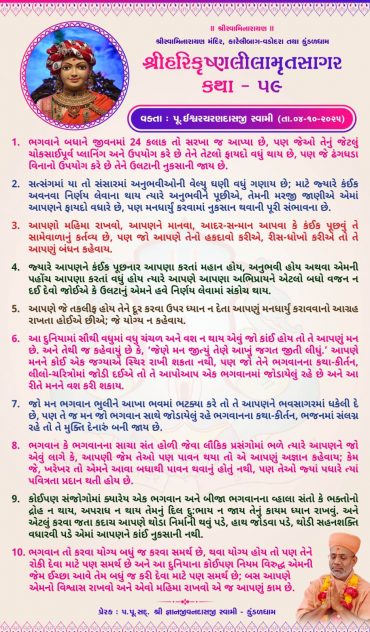 ॥ શ્રીસ્વામિનારાયણ ॥
શ્રીસ્વામિનારાયણ મંદિર, કારેલીબાગ-વડોદરા તથા કુંડળધામ
શ્રીહરિકૃષ્ણલીલામૃતસાગર
કથા - ૫૯
વક્તા : પૂ.ઈશ્વરચરણદાસજી સ્વામી (તા.૦૪-૧૦-૨૦૨૫)
1. ભગવાને બધાને જીવનમાં 24 કલાક તો સરખા જ આપ્યા છે, પણ જેઓ તેનું જેટલું
ચોકસાઈપૂર્વ પ્લાનિંગ અને ઉપયોગ કરે છે તેને તેટલો ફાયદો વધુ થાય છે, પણ જે ઢંગધડા
વિનાનો ઉપયોગ કરે છે તેને ઉલટાની નુકસાની જાય છે.
2. સત્સંગમાં યા તો સંસારમાં અનુભવીઓની વેલ્યુ ઘણી વધુ ગણાય છે; માટે જ્યારે કંઈક
અવનવા નિર્ણય લેવાના થાય ત્યારે અનુભવીને પૂછીએ, તેમની મરજી જાણીએ એમાં
આપણને ફાયદો વધારે છે, પણ મનધાર્યું કરવામાં નુકસાન થવાની પૂરી સંભાવના છે.
3. આપણો મહિમા રાખવો, આપણને માનવા, આદર-સન્માન આપવા કે કંઈક પૂછવું તે
સામેવાળાનું કર્તવ્ય છે, પણ જો આપણે તેનો હકદાવો કરીએ, રીસ-ધોખો કરીએ તો તે
આપણું બંધન કહેવાય.
4. જ્યારે આપણને કંઈક પૂછનાર આપણા કરતાં મહાન હોય, અનુભવી હોય અથવા એમની
પહોંચ આપણા કરતાં વધુ હોય ત્યારે આપણે આપણા અભિપ્રાયને એટલો બધો વજન ન
દઈ દેવો જોઈએ કે ઉલટાનું એમને હવે નિર્ણય લેવામાં સંકોચ થાય.
5. આપણે જે તકલીફ હોય તેને દૂર કરવા ઉપર ધ્યાન ન દેતા આપણું મનધાર્યું કરાવવાનો આગ્રહ
રાખતા હોઈએ છીએ; જે યોગ્ય ન કહેવાય.
6. આ દુનિયામાં સૌથી વધુમાં વધુ ચંચળ અને વશ ન થાય એવું જો કાંઈ હોય તો તે આપણું મન
છે. અને તેથી જ કહેવાયું છે કે, 'જેણે મન જીત્યું તેણે આખું જગત જીતી લીધું.' આપણે
મનને કોઈ એક જગ્યાએ સ્થિર રાખી શકતા નથી, પણ જો તેને ભગવાનના કથા-કીર્તન,
લીલો-ચરિત્રોમાં જોડી દઈએ તો તે આપોઆપ એક ભગવાનમાં જોડાયેલું રહે છે અને આ
રીતે મનને વશ કરી શકાય.
7. જો મન ભગવાન ભુલીને આખા ભવમાં ભટક્યા કરે તો તે આપણને ભવસાગરમાં ધકેલી દે
છે, પણ તે જ મન જો ભગવાન સાથે જોડાયેલું રહે ભગવાનના કથા-કીર્તન, ભજનમાં સંલગ્ન
રહે તો તે મુક્તિ દેનારું બની જાય છે.
8. ભગવાન કે ભગવાનના સાચા સંત હોળી જેવા લૌકિક પ્રસંગોમાં ભળે ત્યારે આપણને જો
એવું લાગે કે, આપણી જેમ તેઓ પણ પાવન થયા તો એ આપણું અજ્ઞાન કહેવાય; કેમ
જે, ખરેખર તો એમને આવા બધાથી પાવન થવાનું હોતું નથી, પણ તેઓ જ્યાં પધારે ત્યાં
પવિત્રતા પ્રદાન થતી હોય છે.
9. કોઈપણ સંજોગોમાં ક્યારેય એક ભગવાન અને બીજા ભગવાનના વ્હાલા સંતો કે ભક્તોનો
દ્રોહ ન થાય, અપરાધ ન થાય તેમનું દિલ દુઃભાય ન જાય તેનું કાયમ ધ્યાન રાખવું. અને
એટલું કરવા જતા કદાચ આપણે થોડા નિર્માની થવું પડે, હાથ જોડવા પડે, થોડી સહનશક્તિ
વધારવી પડે એમાં આપણને કાંઈ નુકસાની નથી.
10. ભગવાન તો કરવા યોગ્ય બધું જ કરવા સમર્થ છે, થવા યોગ્ય હોય તો પણ તેને
રોકી દેવા માટે પણ સમર્થ છે અને આ દુનિયાના કોઈપણ નિયમ વિરુદ્ધ એમની
જેમ ઈચ્છા આવે તેમ બધું જ કરી દેવા માટે પણ સમર્થ છે; બસ આપણે
એમનો વિશ્વાસ રાખવો અને એવો મહિમા રાખવો એ જ આપણું કામ છે.
પ્રેરક : પ.પૂ.સદ્. શ્રી જ્ઞાનજીવનદાસજી સ્વામી - કુંડળધામ